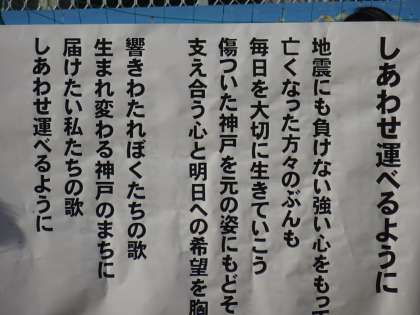 しあわせ運べるように
地震にも負けない強い心をもって
亡くなった方々のぶんも
毎日を大切に生きていこう
傷ついた神戸を元の姿にもどそ
支え合う心と明日への希望を胸
響きわたれぼくたちの歌
生まれ変わる神戸のまちに
届けたい私たちの歌
しあわせ運べるように